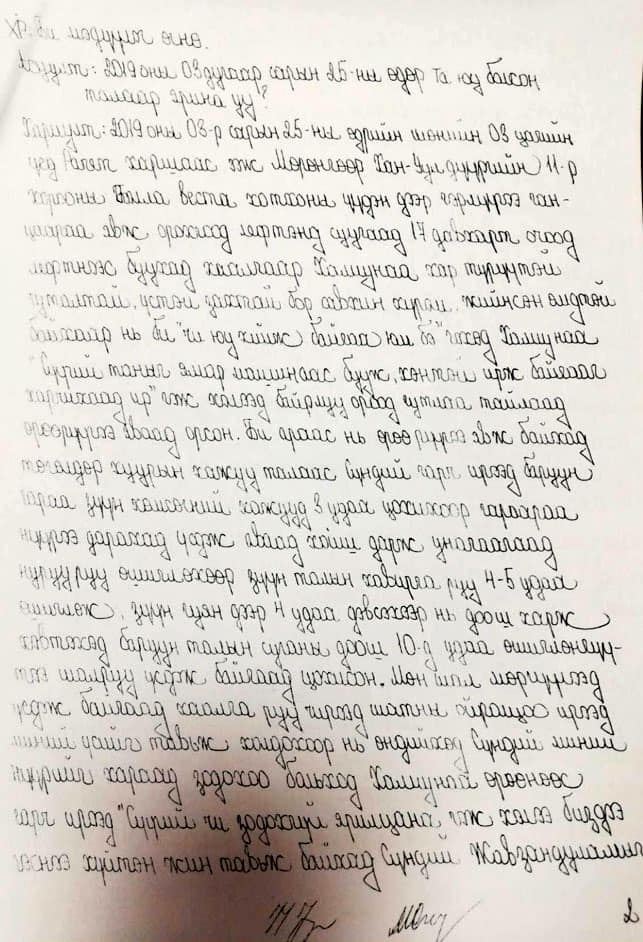 Хр: Би мэдүүлэг өгнө.
Асуулт: 2019 оны 03 дугаар сарын 25-ны өдөр та юу болсон
талаар ярина уу?
Хариулт: 2019 оны 03-р сарын 25-ны өдрийн шөнийн 03 цагийн
үед харшаас гэж Мөрөнгөөр Хан-Уул дүүргийн 11-р
хорооны Вилла веста хотхоны үүдэн дээр гэрлүүгээ ган-
цаараа явж орохлоор лифтэнд суугаад 17 давхарт очоод
лифтнээс буухад хаалгаар Халиунаа хар түрүүтэй
гуталтай, үстэй захтай бор савхин хүрэм, жийнсэн өмдтэй
байхаар нь би "чи юу хийж байгаа юм бэ" гэхэд Халиунаа
"Сүүрий таныг ямар машинаас бууж, хэнтэй ирж байгааг
харчихаад ир" гэж хэлээд байрлуу ороод гутлаа тайлаад
өрөөрүүгээ яваад орсон. Би араас нь өрөө рүүгээ явж байхад
төгөлдөр хуурын хажуу талаас Сүндий гарч ирээд баруун
гараа зүүн хөмсөгний хажууд 3 удаа цохихоор гараараа
нүүрээ дарахад үсдэж аваад хойш дарж унагаагаад
нуруу руу өшиглөхөөр зүүн талын хавирга руу 4-5 удаа
өшиглөж, зүүн гуян дээр 4 удаа дэвсэхээр нь доош харж
хэвтэхэд баруун талын сугана доош 10-д удаа өшиглөнгүү-
тээ шалруу үсдэж байгаад цохисон. Мөн шал мөргүүлээд
үсдэж байгаад хаалга руу чирээд шатны ойролцоо ирээд
миний үсийг тавьж холдохоор нь өндийхөд Сүндий миний
нүүрийг хараад зодохоо больход Халиунаа өрөөнөөс
гарч ирээд "Сүүрий чи зодохгүй ярилцана гэж хэлээ биздээ
гэснээ хүйтэн жин тавьж байхад Сүндий Жавзандуламын
2